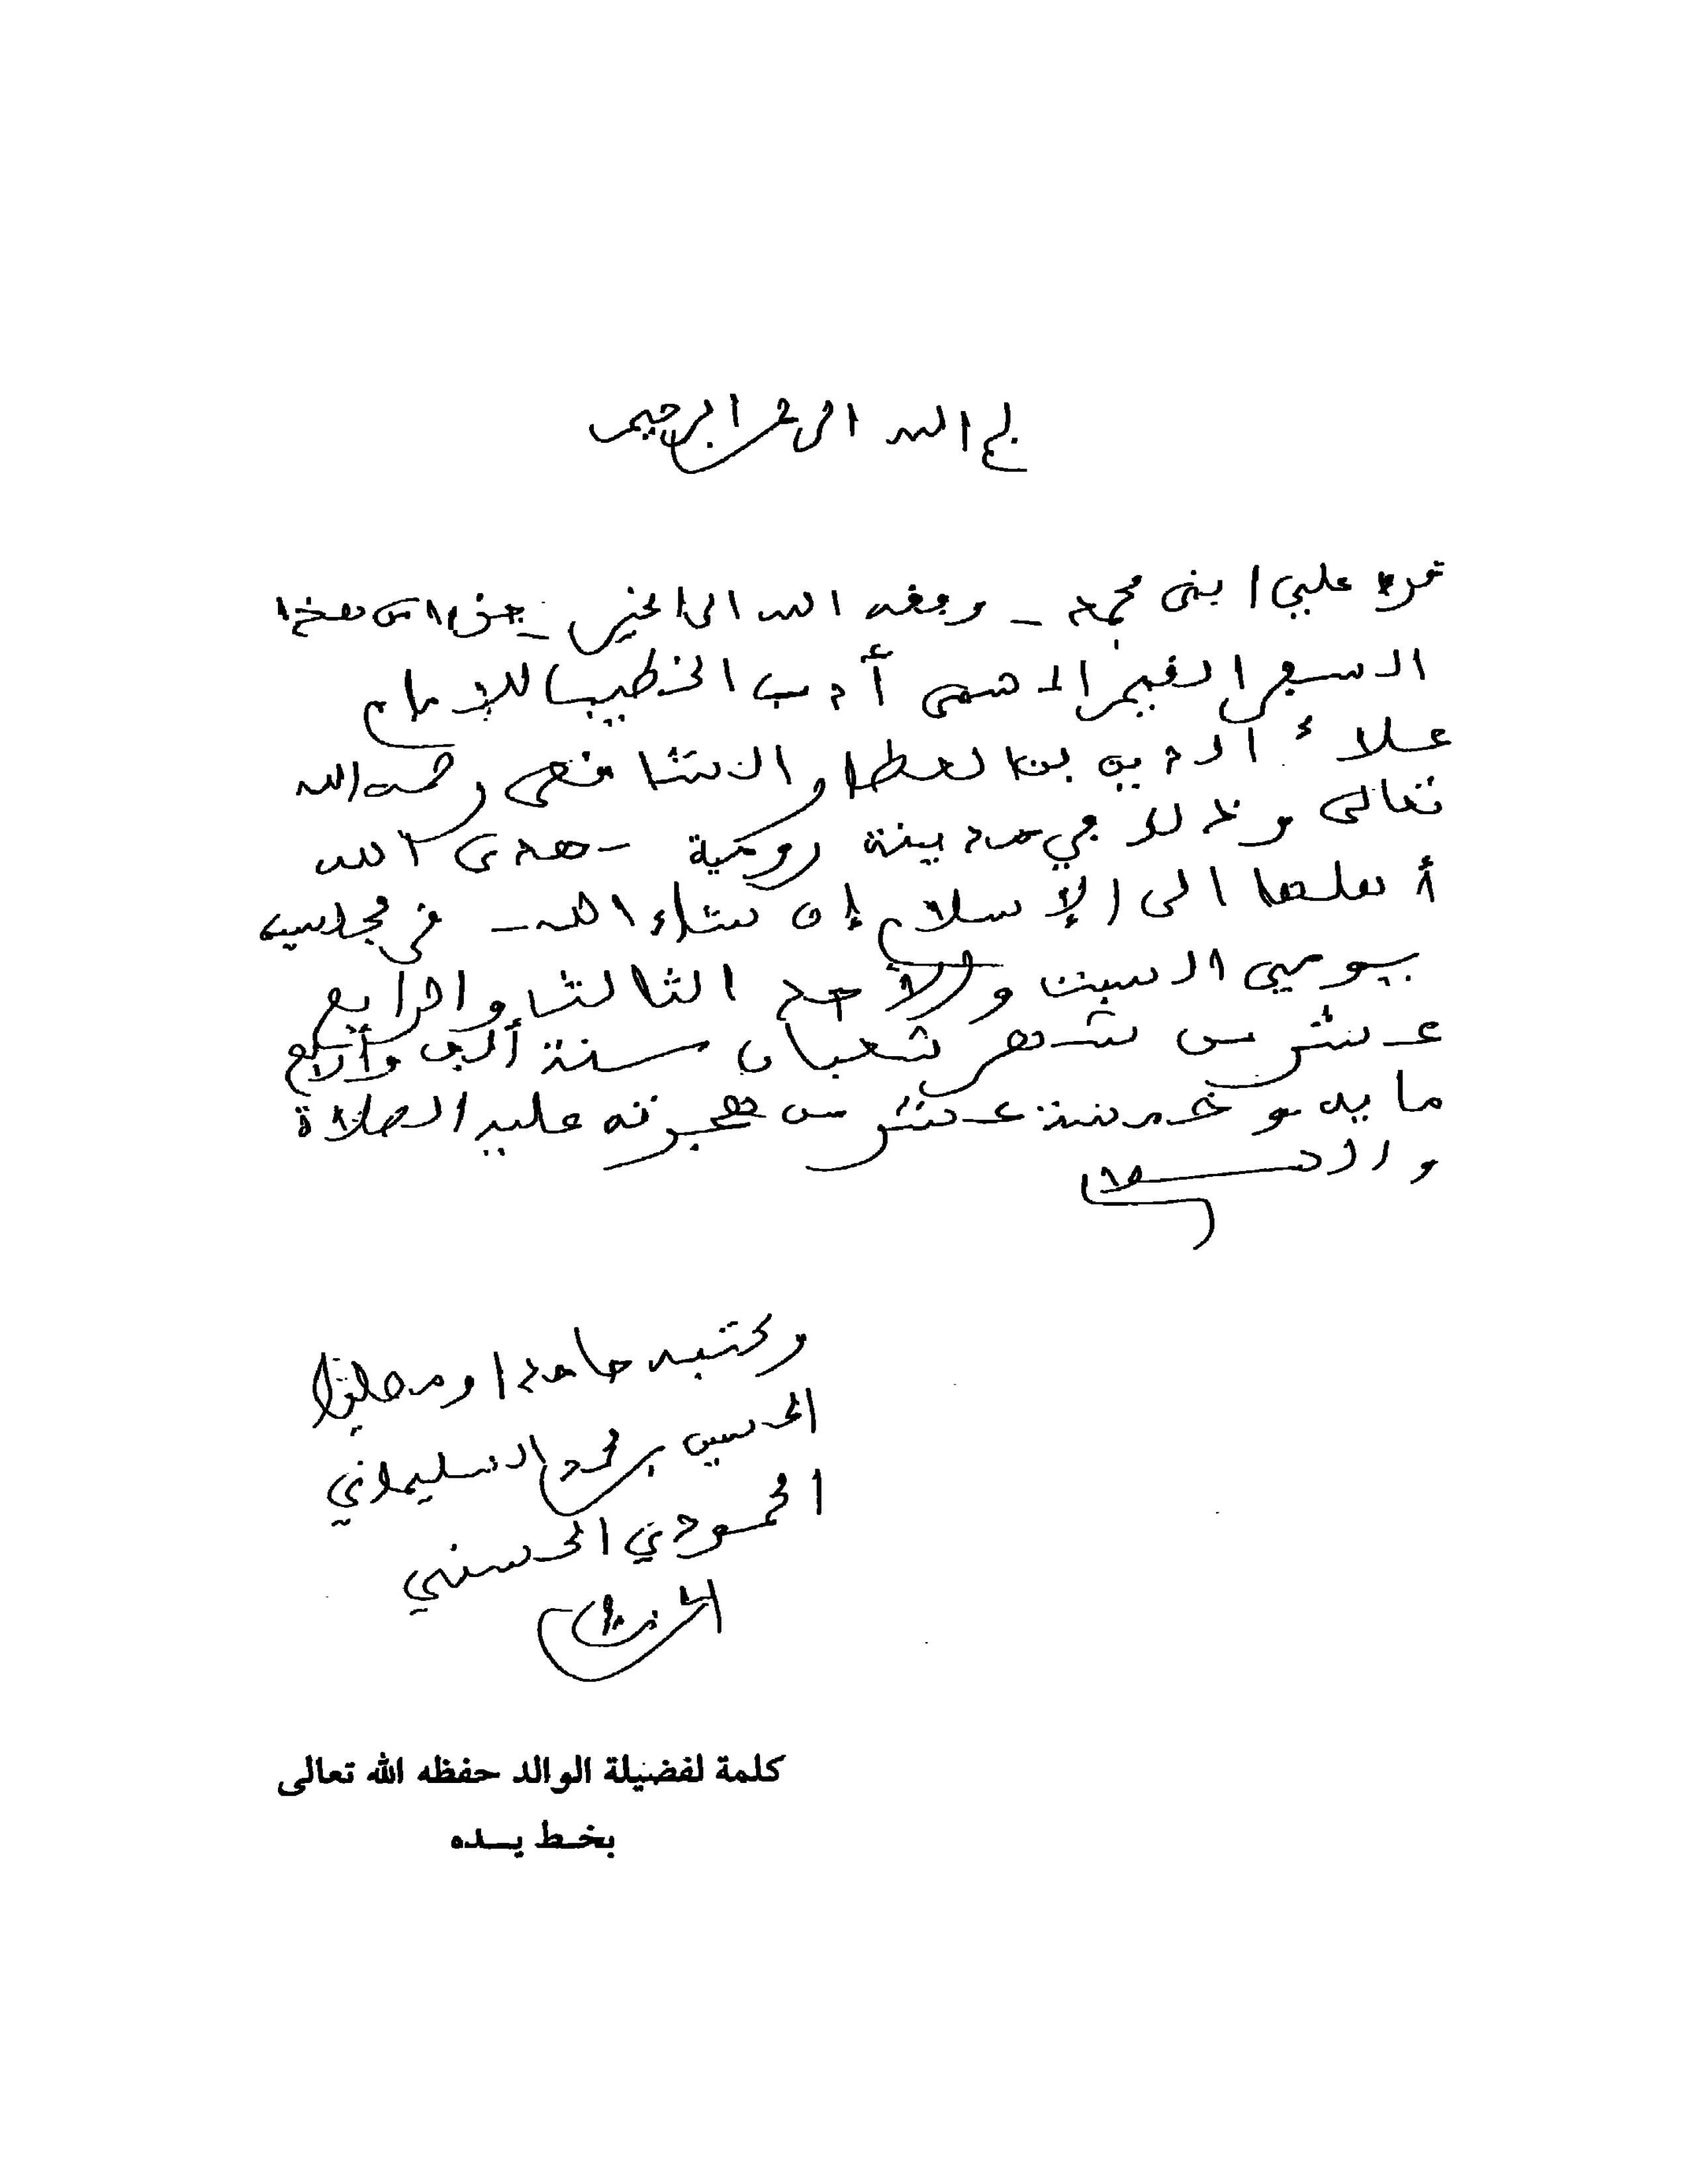 بسم الله الرحمن الرحيم
قرأ علي ابني محمد _ وفقه الله الى الخير _ جزءا من هذا
السفر القيم المسمى أدب الخطيب للإمام
علاء الدين بن العطار الشافعي رحمه الله
تعالى وذلك في مدينة رومية _ هدى الله
أهلها الى الإسلام إن شاء الله _ في مجلسين
يومي السبت والأحد الثالث والرابع
عشر من شهر شعبان سنة ألف وأربع
مايه وخمسة عشر من هجرته عليه الصلاة
والسلام
وكتبه حامدا ومصليا
الحسين بن محمد السليماني
المحمودي الحسني
كلمة لفضيلة الوالد حفظه الله تعالى
بخط يده